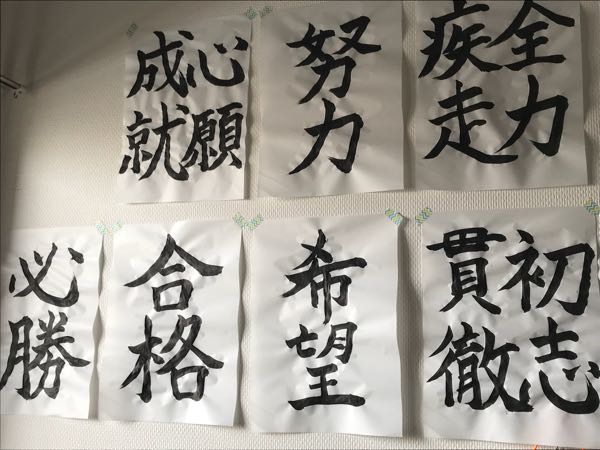 全力
疾走
努力
心願
成就
初志
貫徹
希望
合格
必勝